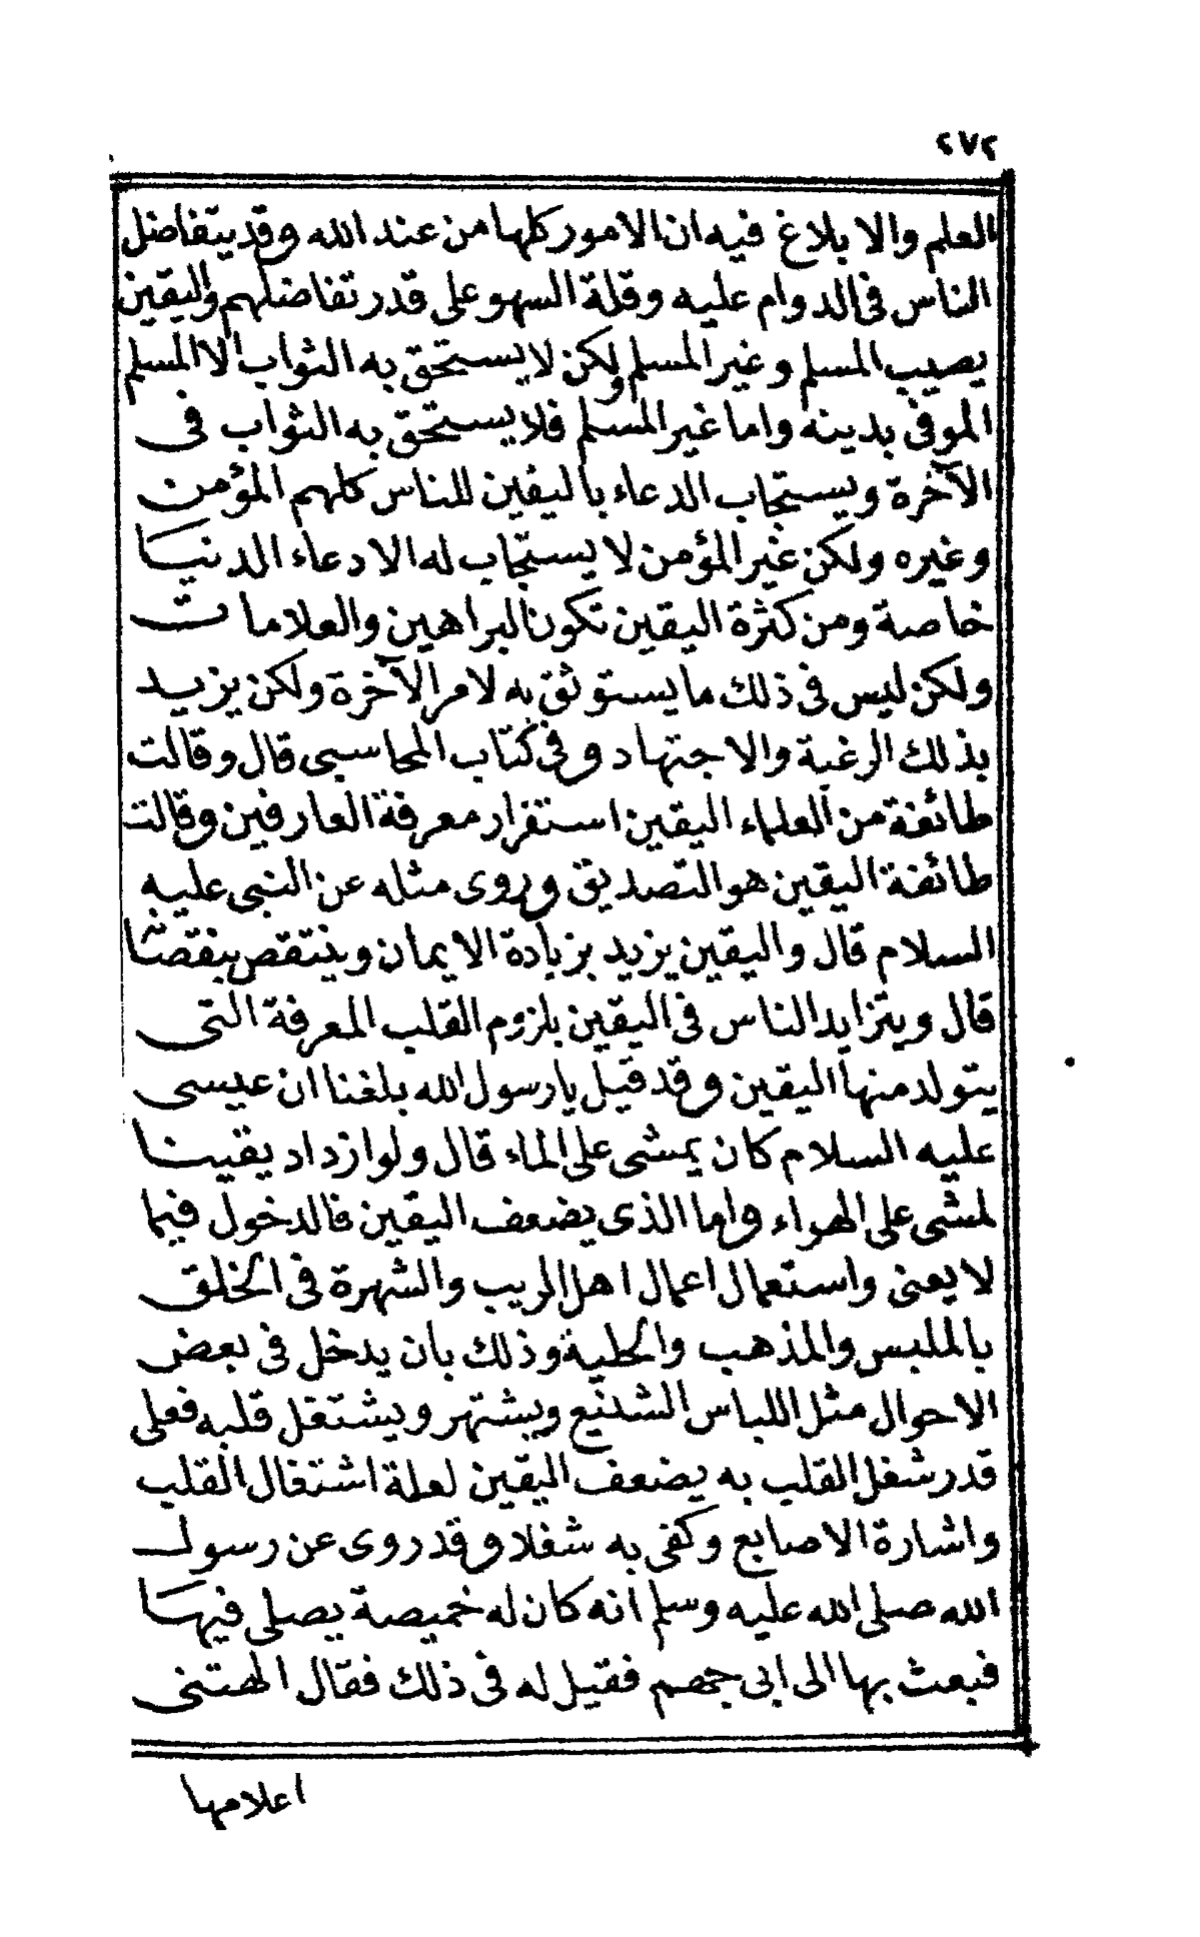 ٢٧٢
العلم والابلاغ فيه ان الامور كلها من عند الله وقد يتفاضل
الناس فى الدوام عليه وقلة السهو على قدر تفاضلهم واليقين
يصيب المسلم وغير المسلم ولكن لا يستحق به الثواب الا المسلم
الموفى بدينه واما غير المسلم فلا يستحق به الثواب فى
الآخرة ويستجاب الدعاء باليقين للناس كلهم المؤمن
وغيره ولكن غير المؤمن لا يستجاب له الا دعاء الدنيا
خاصة ومن كثرة اليقين تكون البراهين والعلامات
ولكن ليس فى ذلك ما يستوثق به لامر الآخرة ولكن يزيد
بذلك الرغبة والاجتهاد وفى كتاب المحاسبى قال وقالت
طائفة من العلماء اليقين استقرار معرفة العارفين وقالت
طائفة اليقين هو التصديق وروى مثله عن النبى عليه
السلام قال واليقين يزيد بزيادة الايمان وينتقص بنقصانها
قال ويتزايد الناس فى اليقين بلزوم القلب المعرفة التى
يتولد منها اليقين وقد قيل يا رسول الله بلغنا ان عيسى
عليه السلام كان يمشى على الماء قال ولو ازداد يقينا
لمشى على الهواء واما الذى يضعف اليقين فالدخول فيما
لا يعنى واستعمال اعمال اهل الريب والشهرة فى الخلق
بالملبس والمذهب والحلية وذلك بان يدخل فى بعض
الاحوال مثل اللباس الشنيع ويشتهر ويشتغل قلبه فعلى
قدر شغل القلب به يضعف اليقين لعلة اشتغال القلب
واشارة الاصابع وكفى به شغلا وقد روى عن رسول
الله صلى الله عليه وسلم انه كان له خميصة يصلى فيها
فبعث بها الى ابى جهم فقيل له فى ذلك فقال الهتنى
اعلامها